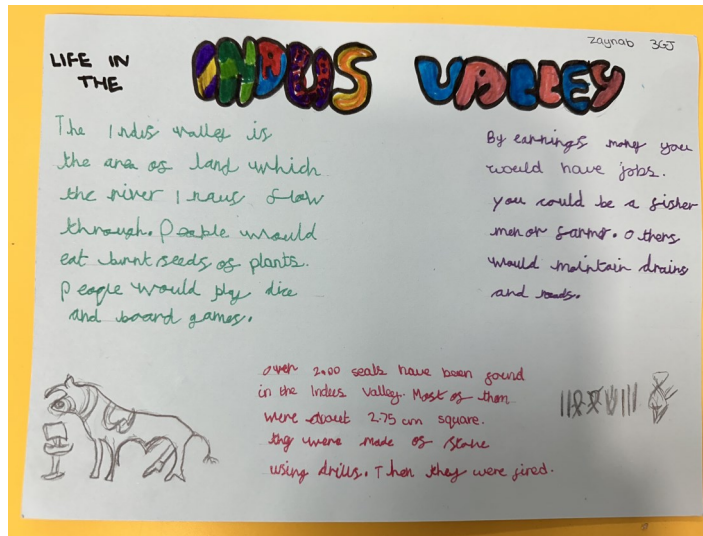 Zaynab 3GJ
LIFE IN THE
INDUS VALLEY
The Indus valley is
the area of land which
the river Indus flow
through. People would
eat burnt seeds of plants.
People would play dice
and board games.
By earnings money you
would have jobs.
you could be a fisher
men or farmr. Others
would maintain drains
and roads.
over 2000 seals have been found
in the Indus Valley. Most of them
were about 2.75 cm square.
they were made of stone
using drills. Then they were fired.